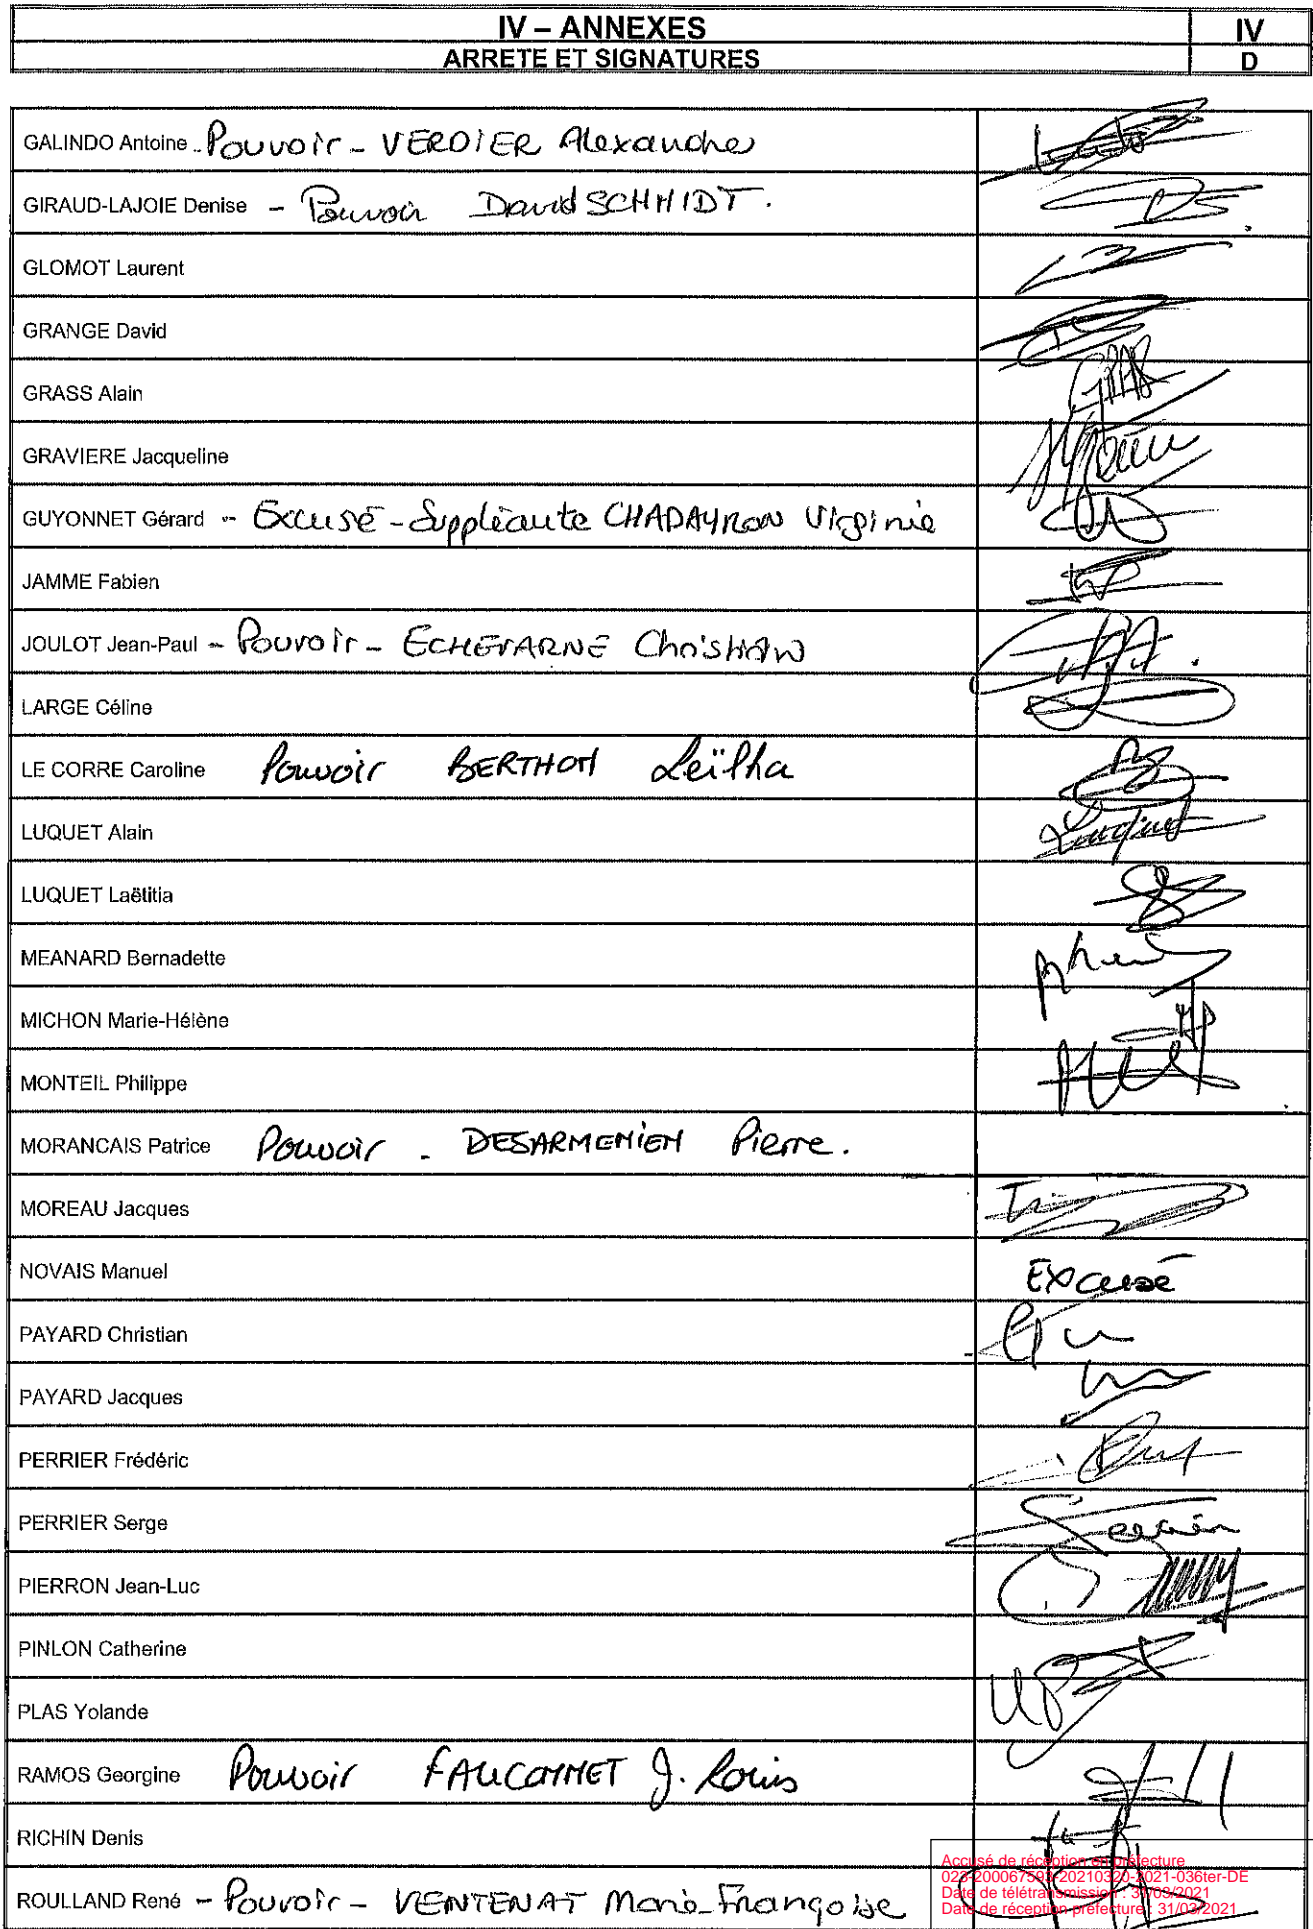 IV – ANNEXES IV
ARRETE ET SIGNATURES D
GALINDO Antoine - Pouvoir - VERDIER Alexandre
GIRAUD-LAJOIE Denise - Pouvoir David SCHMIDT.
GLOMOT Laurent
GRANGE David
GRASS Alain
GRAVIERE Jacqueline
GUYONNET Gérard - Excusé - Suppléante CHADAYRON Virginie
JAMME Fabien
JOULOT Jean-Paul - Pouvoir - ECHEVARNE Christian
LARGE Céline
LE CORRE Caroline Pouvoir BERTHON Leïlha
LUQUET Alain
LUQUET Laëtitia
MEANARD Bernadette
MICHON Marie-Hélène
MONTEIL Philippe
MORANCAIS Patrice Pouvoir - DESARMENIEN Pierre.
MOREAU Jacques
NOVAIS Manuel Excusé
PAYARD Christian
PAYARD Jacques
PERRIER Frédéric
PERRIER Serge
PIERRON Jean-Luc
PINLON Catherine
PLAS Yolande
RAMOS Georgine Pouvoir FAUCONNET J. Louis
RICHIN Denis
ROULLAND René - Pouvoir - VENTENAT Marie-Françoise
Accusé de réception en préfecture
023-200067593-20210320-2021-036ter-DE
Date de télétransmission : 31/03/2021
Date de réception préfecture : 31/03/2021